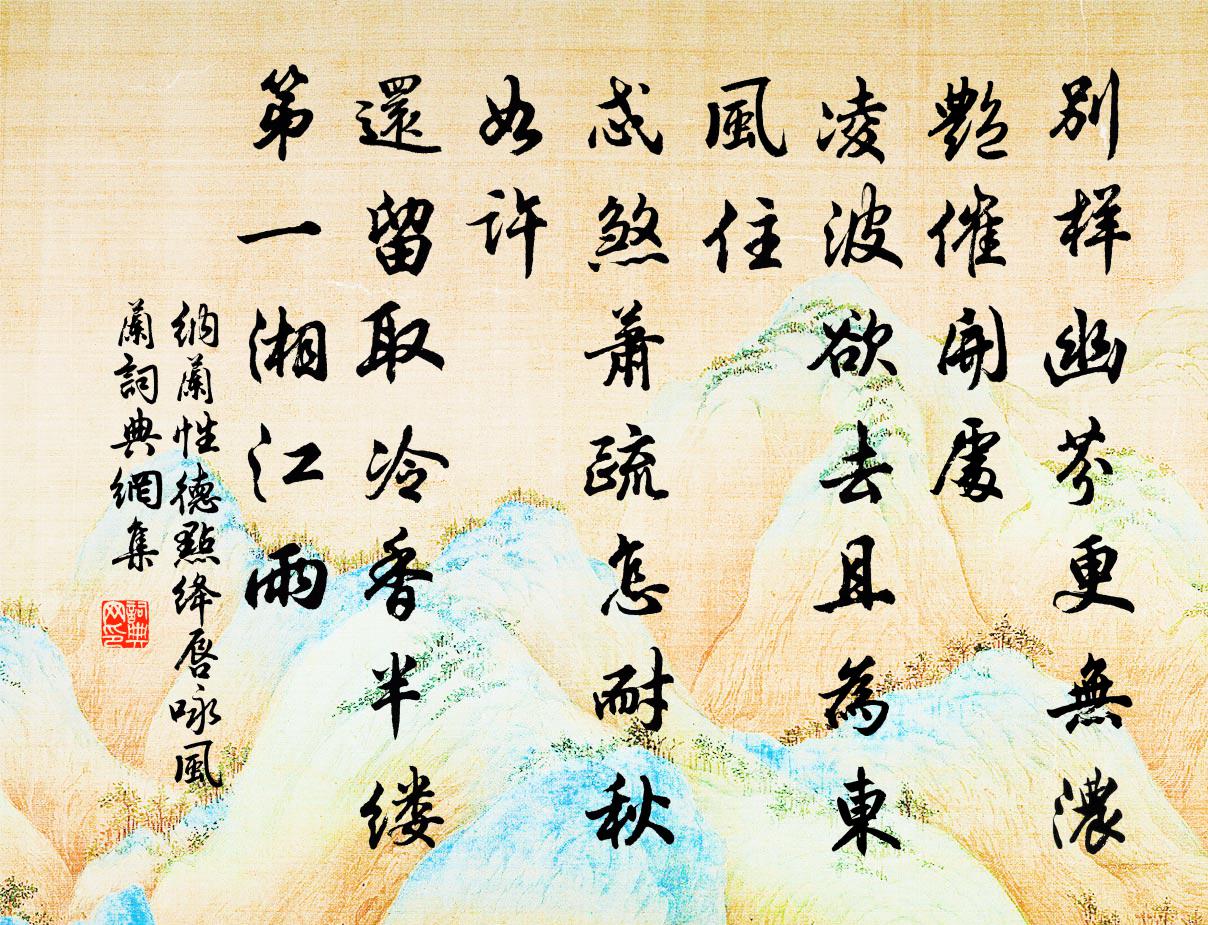 别样幽芬更無濃
艷催開處
凌波欲去且為東
風住
忒煞蕭疏怎耐秋
如許
還留取冷香半缕
第一湘江雨
納蘭性德點绛唇咏風
蘭詞典網集
詞典
网印